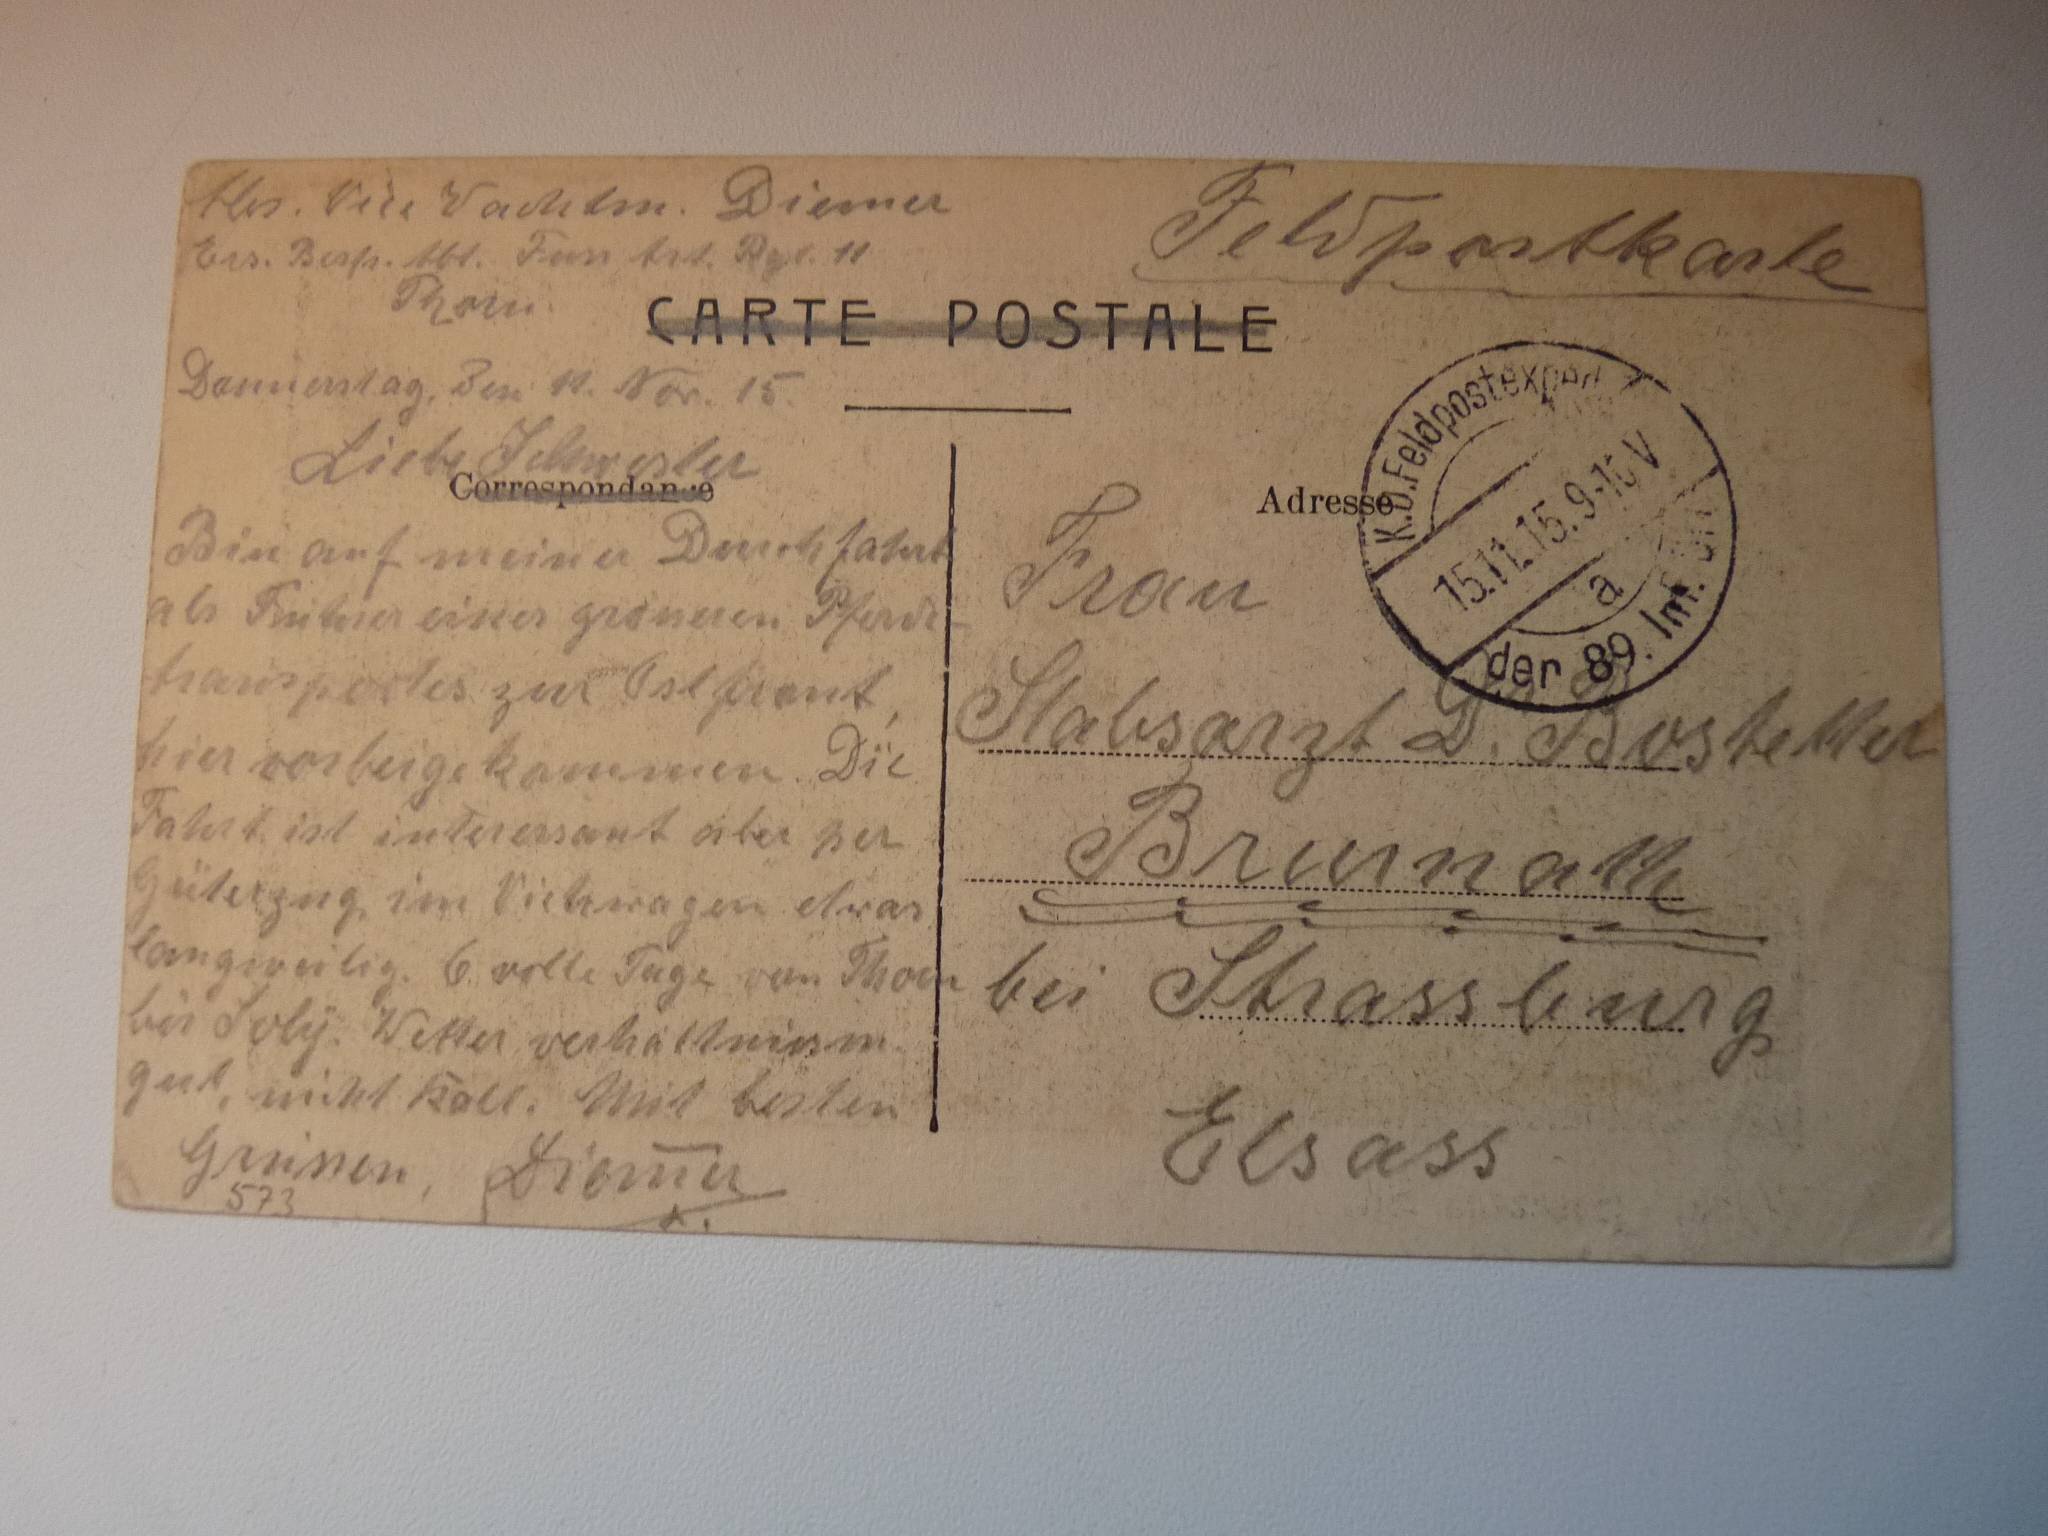 Abs. Vice Wachtm. Diemer
Ers. Besp. Abt. Fuss Art. Rgt. 11
Thorn
Feldpostkarte
CARTE POSTALE
Donnerstag, den 11. Nov. 15.
Liebe Schwester
Correspondance
Bin auf meiner Durchfahrt
als Führer einer grösseren Pferde-
transportes zur Ostfront,
hier vorbeigekommen. Die
Fahrt ist interessant aber per
Güterzug im Viehwagen etwas
langweilig. 6 volle Tage von Thorn
bis Soly. Wetter verhältnissm.
gut, nicht kalt. Mit besten
Grüssen, Diemer
573
Adresse
K.D.Feldpostexped
15.11.15. 9-10 V
a
der 89. Inf.
Frau
Stabsarzt D. Bostetter
Brumath
bei Strassburg
Elsass